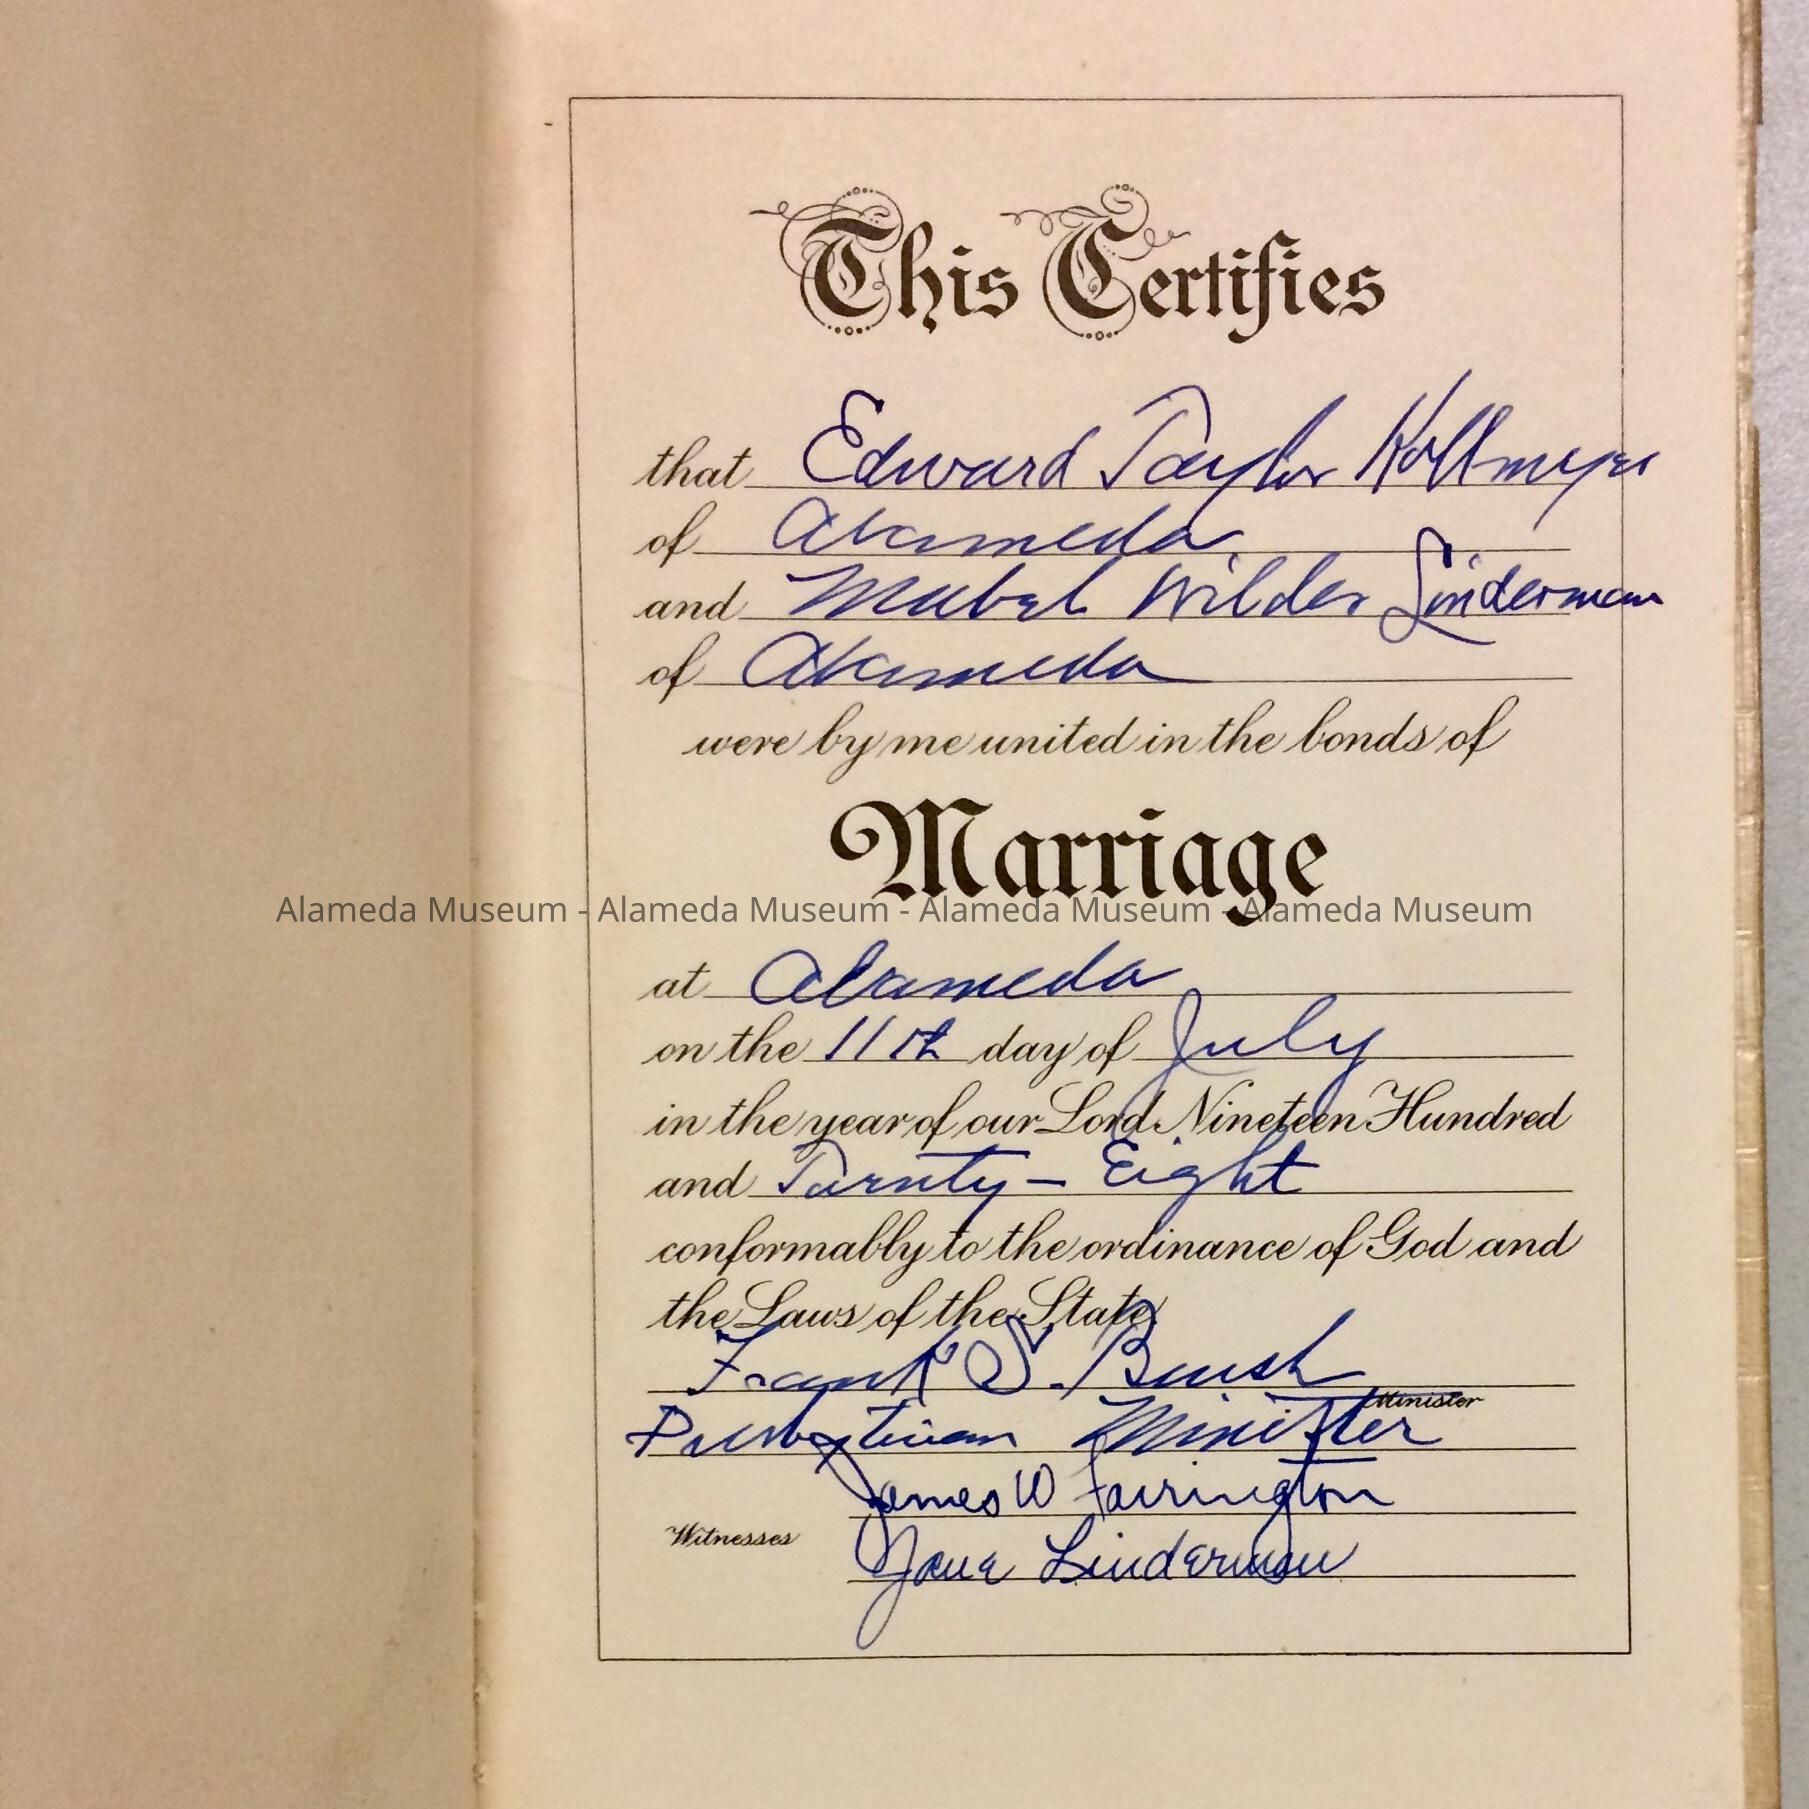 This Certifies
that Edward Taylor Kollmyer
of Alameda
and Mabel Wilder Linderman
of Alameda
were by me united in the bonds of
Marriage
Alameda Museum - Alameda Museum - Alameda Museum - Alameda Museum
at Alameda
on the 11th day of July
in the year of our Lord Nineteen Hundred
and Twenty-Eight
conformably to the ordinance of God and
the Laws of the State
Frank S. Brush
Minister
Presbyterian Minister
James W Farrington
Witnesses
Jane Linderman